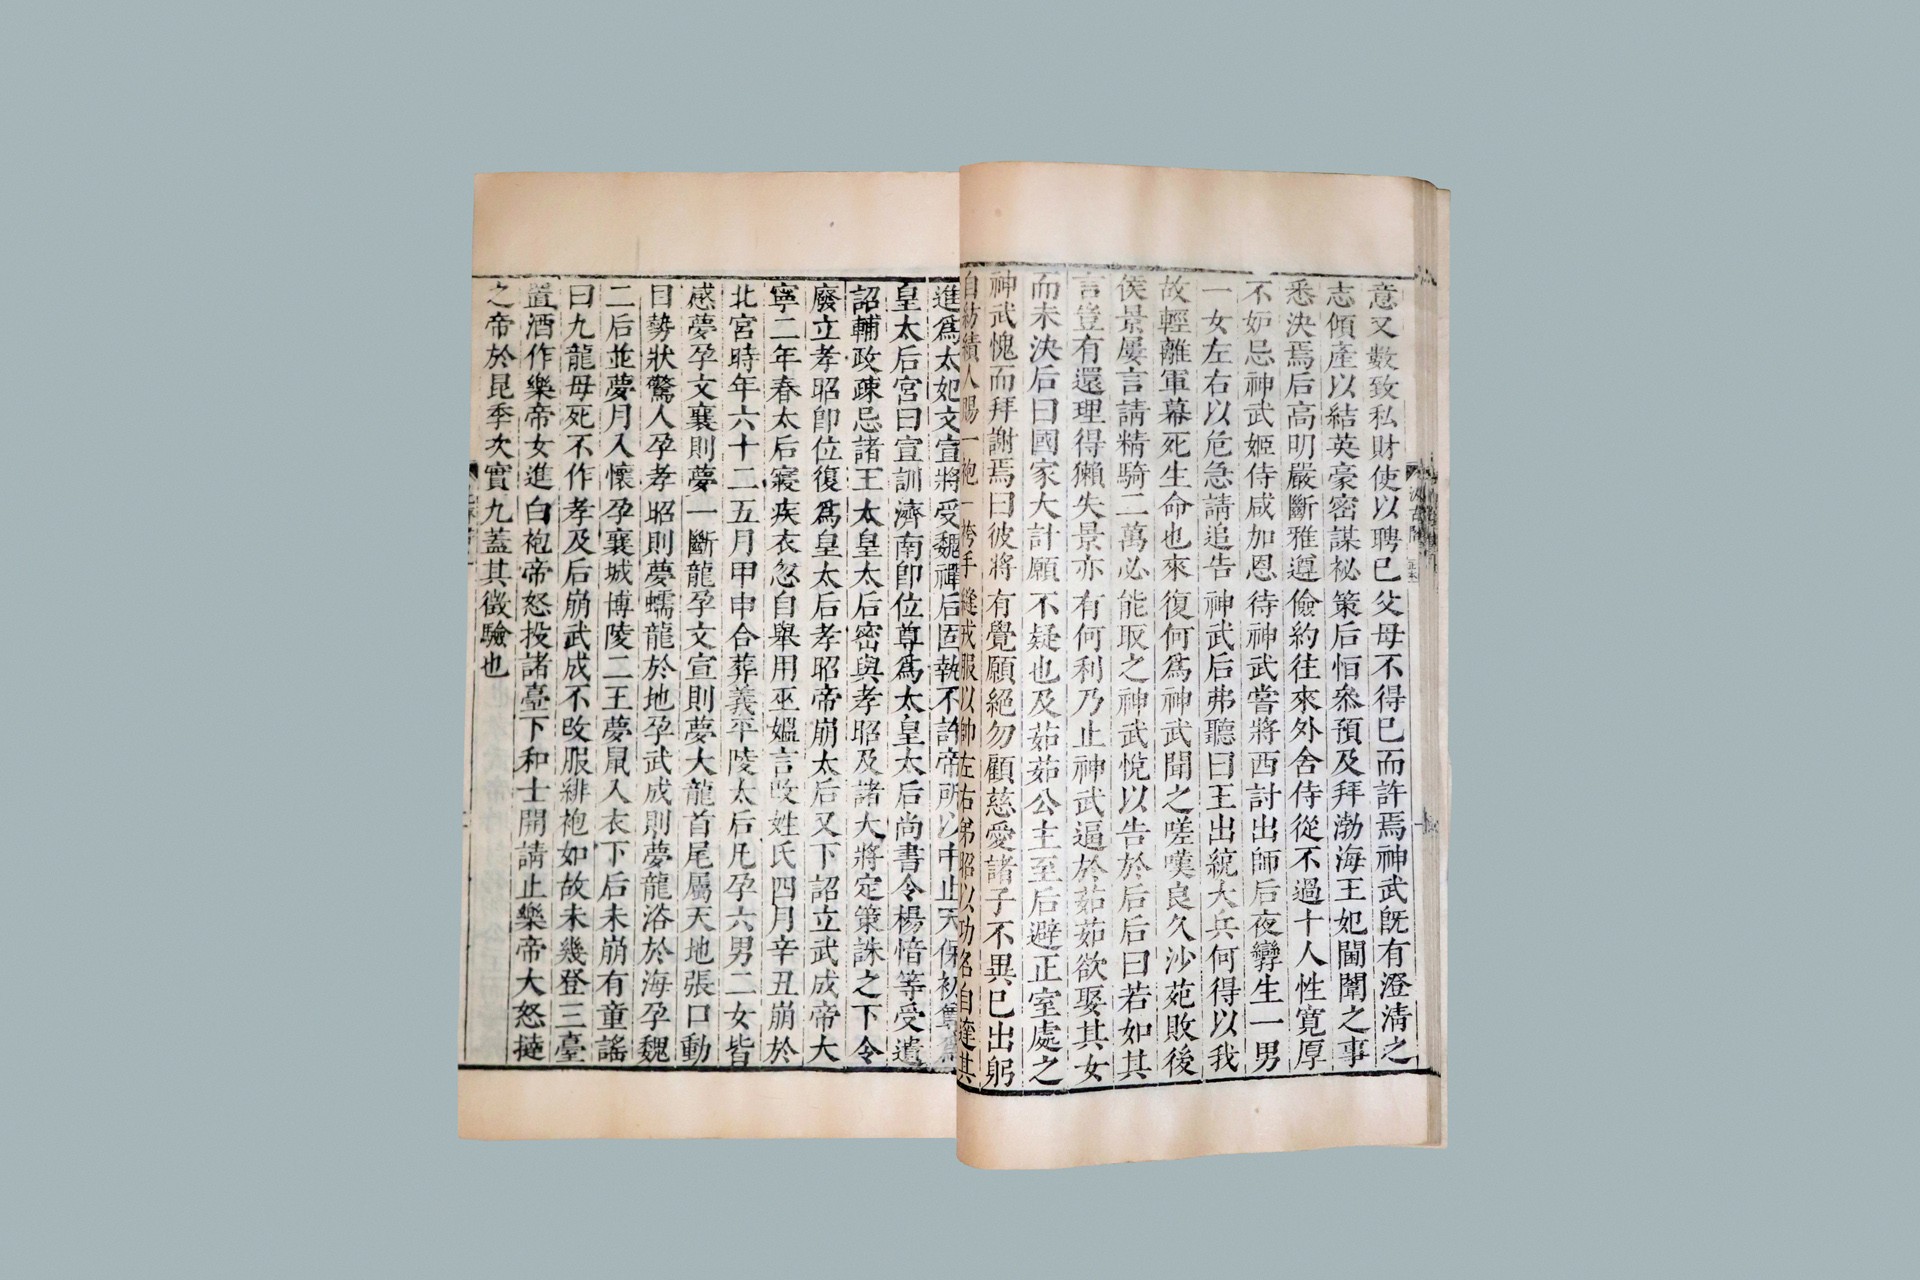 意又數致私財使以聘己父母不得已而許焉神武旣有澄淸之
志傾產以結英豪密謀祕策后恒叅預及拜渤海王妃閫闈之事
悉決焉后高明嚴斷雅遵儉約往來外舍侍從不過十人性寬厚
不妬忌神武姬侍咸加恩待神武嘗將西討出師后夜孿生一男
一女左右以危急請追告神武后弗聽曰王出統大兵何得以我
故輕離軍幕死生命也來復何爲神武聞之嗟嘆良久沙苑敗後
侯景屢言請精騎二萬必能取之神武悅以告於后后曰若如其
言豈有還理得獺失景亦有何利乃止神武逼於茹茹欲娶其女
而未決后曰國家大計願不疑也及茹茹公主至后避正室處之
神武愧而拜謝焉曰彼將有覺願絕勿顧慈愛諸子不異已出躬
自紡績人賜一袍一袴手縫戎服以帥左右弟昭以功名自達其
進爲太妃文宣將受魏禪后固執不許帝所以中止天保初尊爲
皇太后宮曰宣訓濟南卽位尊爲太皇太后尚書令楊愔等受遺
詔輔政疎忌諸王太皇太后密與孝昭及諸大將定策誅之下令
廢立孝昭卽位復爲皇太后孝昭帝崩太后又下詔立武成帝大
寧二年春太后寢疾衣忽自舉用巫媼言改姓氏四月辛丑崩於
北宮時年六十二五月甲申合葬義平陵太后凡孕六男二女皆
感夢孕文襄則夢一斷龍孕文宣則夢大龍首尾屬天地張口動
目勢狀驚人孕孝昭則夢蠕龍於地孕武成則夢龍浴於海孕魏
二后並夢月入懷孕襄城博陵二王夢鼠入衣下后未崩有童謠
曰九龍母死不作孝及后崩武成不改服緋袍如故未幾登三臺
置酒作樂帝女進白袍帝怒投諸臺下和士開請止樂帝大怒撻
之帝於昆季次實九蓋其徵驗也